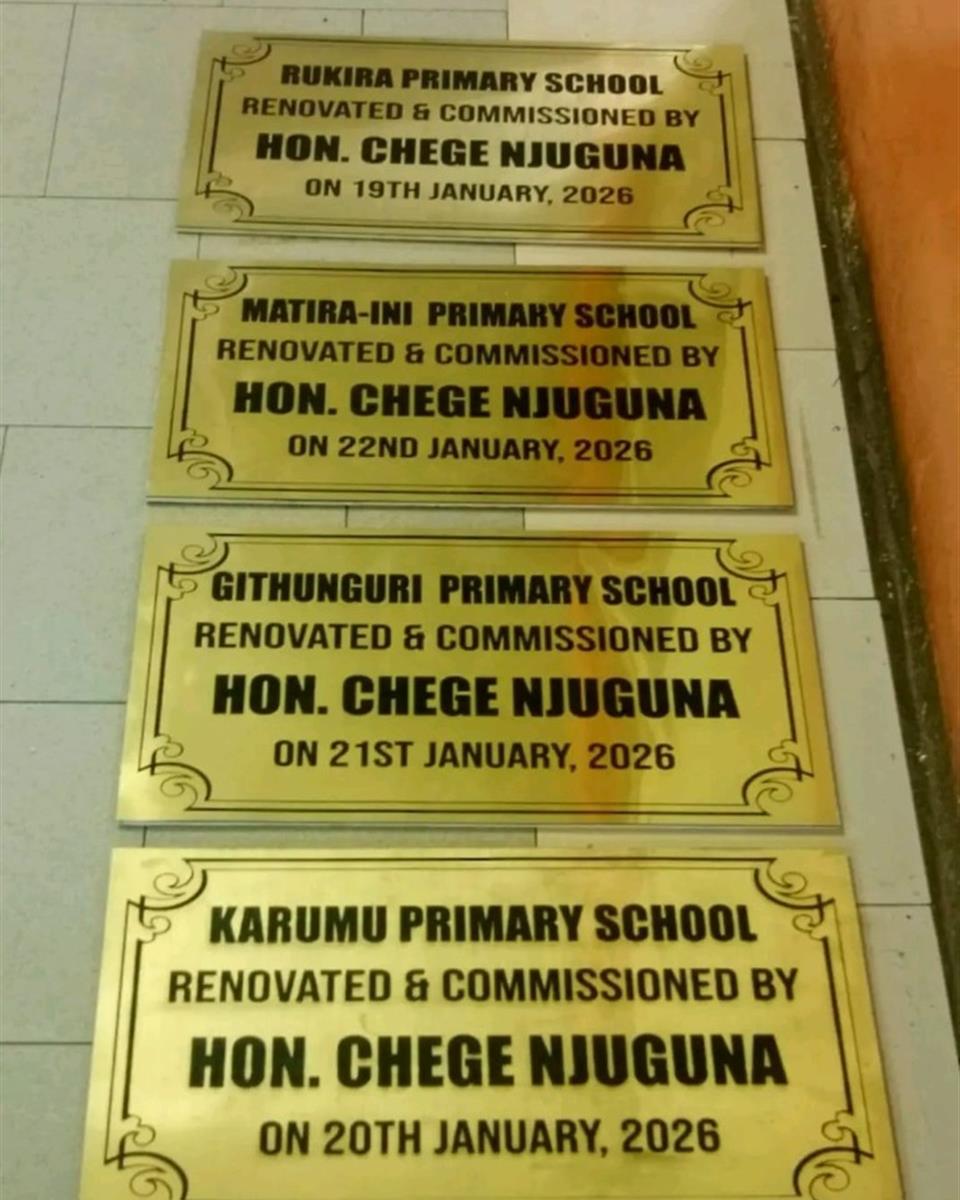 RUKIRA PRIMARY SCHOOL
RENOVATED & COMMISSIONED BY
HON. CHEGE NJUGUNA
ON 19TH JANUARY, 2026
MATIRA-INI PRIMARY SCHOOL
RENOVATED & COMMISSIONED BY
HON. CHEGE NJUGUNA
ON 22ND JANUARY, 2026
GITHUNGURI PRIMARY SCHOOL
RENOVATED & COMMISSIONED BY
HON. CHEGE NJUGUNA
ON 21ST JANUARY, 2026
KARUMU PRIMARY SCHOOL
RENOVATED & COMMISSIONED BY
HON. CHEGE NJUGUNA
ON 20TH JANUARY, 2026